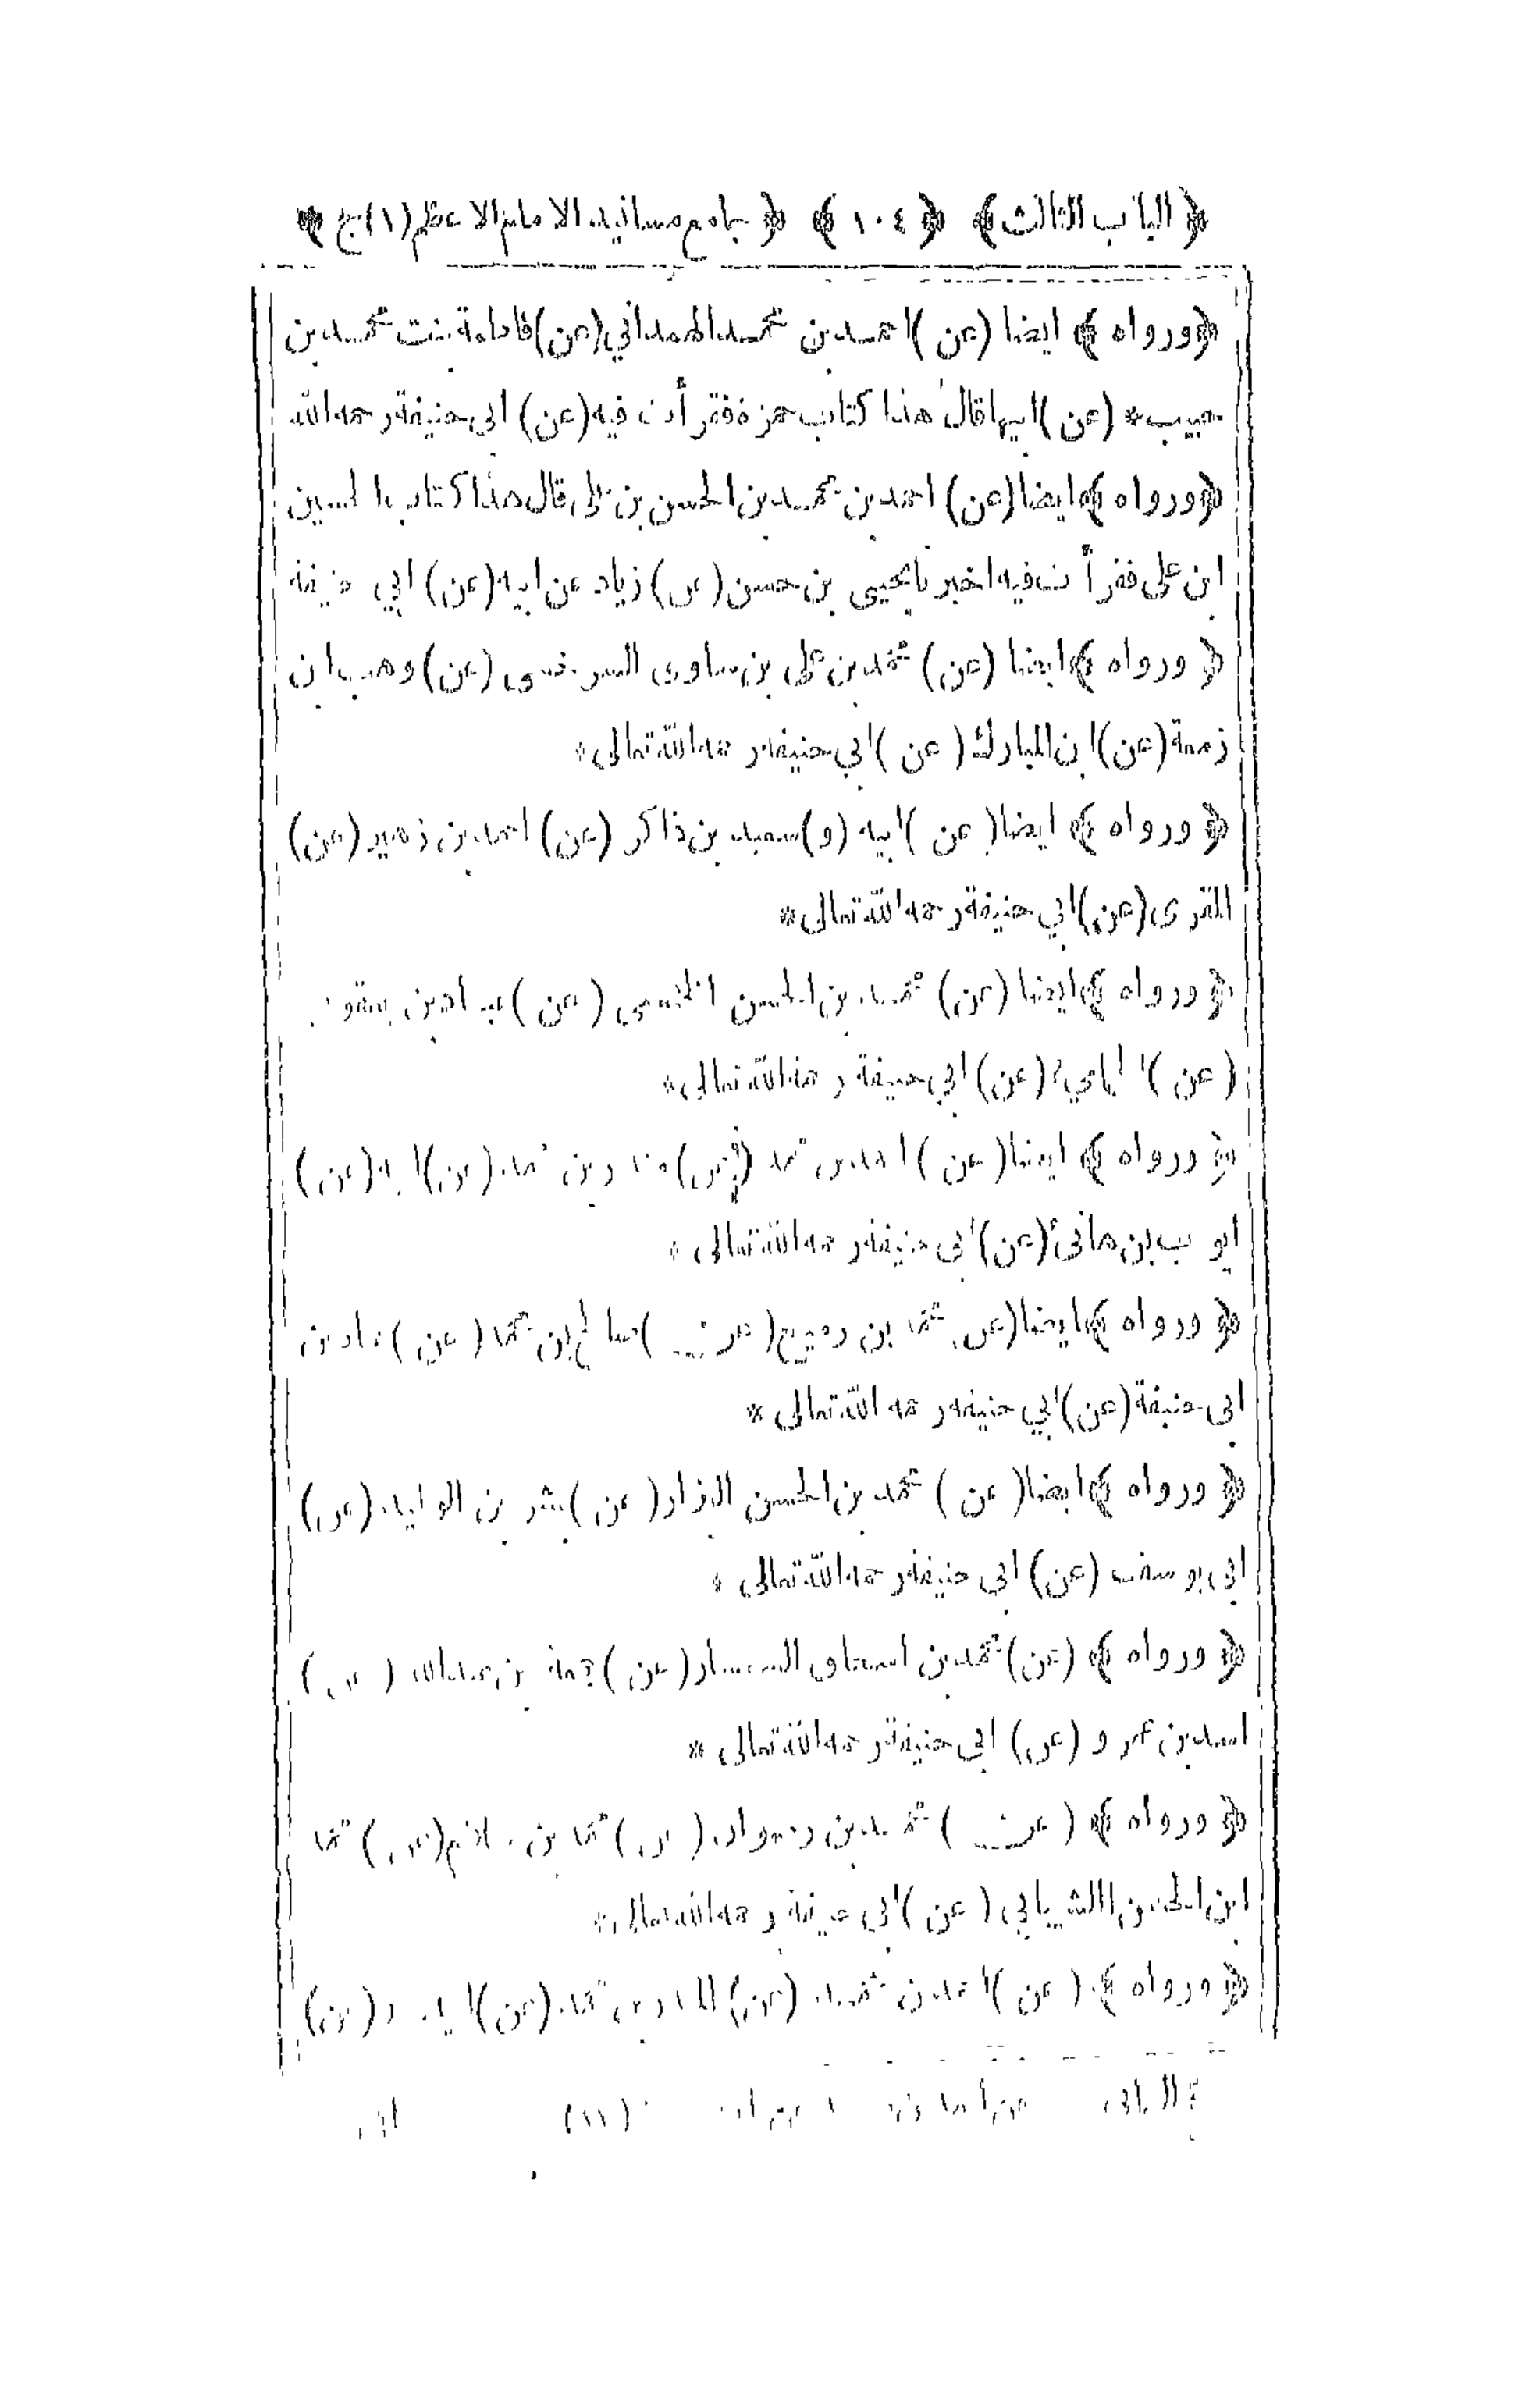 ﴿الباب الثالث﴾ ﴿١٠٤﴾ ﴿جامع مسانيد الامام الاعظم(١)ج﴾
﴿ورواه﴾ ايضا (عن) احمد بن محمد الهمداني (عن) فاطمة بنت محمد بن
حبيب* (عن) ابيها قال هذا كتاب حمزة فقرأت فيه (عن) ابى حنيفة رحمه الله
﴿ورواه﴾ ايضا (عن) احمد بن محمد بن الحسن بن على قال هذا كتاب الحسين
ابن على فقرأت فيه اخبرنا يحيى بن حسن (عن) زياد عن ابيه (عن) ابي حنيفة
﴿ورواه﴾ ايضا (عن) محمد بن على بن ساوى السرخسى (عن) وهب بن
زمعة (عن) ابن المبارك (عن) ابي حنيفة رحمه الله تعالى*
﴿ورواه﴾ ايضا (عن) ابيه (و) سعيد بن ذاكر (عن) احمد بن زهير (عن)
المقرى (عن) ابي حنيفة رحمه الله تعالى*
﴿ورواه﴾ ايضا (عن) محمد بن الحسن (عن)
(عن) (عن) ابي حنيفة رحمه الله تعالى*
﴿ورواه﴾ ايضا (عن) احمد بن محمد (عن) منذر بن محمد (عن) ابيه (عن)
ايوب بن هانئ (عن) ابى حنيفة رحمه الله تعالى*
﴿ورواه﴾ ايضا (عن) محمد بن رميح (عن) صالح بن محمد (عن) حماد بن
ابى حنيفة (عن) ابي حنيفة رحمه الله تعالى*
﴿ورواه﴾ ايضا (عن) محمد بن الحسن البزار (عن) بشر بن الوليد (عن)
ابى يوسف (عن) ابى حنيفة رحمه الله تعالى*
﴿ورواه﴾ (عن) محمد بن اسحاق السمسار (عن) جمعة بن عبدالله (عن)
اسد بن عمرو (عن) ابى حنيفة رحمه الله تعالى*
﴿ورواه﴾ (عن) محمد بن رضوان (عن) محمد بن سلام (عن) محمد
ابن الحسن الشيباني (عن) ابى حنيفة رحمه الله تعالى*
﴿ورواه﴾ (عن) احمد بن محمد (عن) المنذر بن محمد (عن) ابيه (عن)